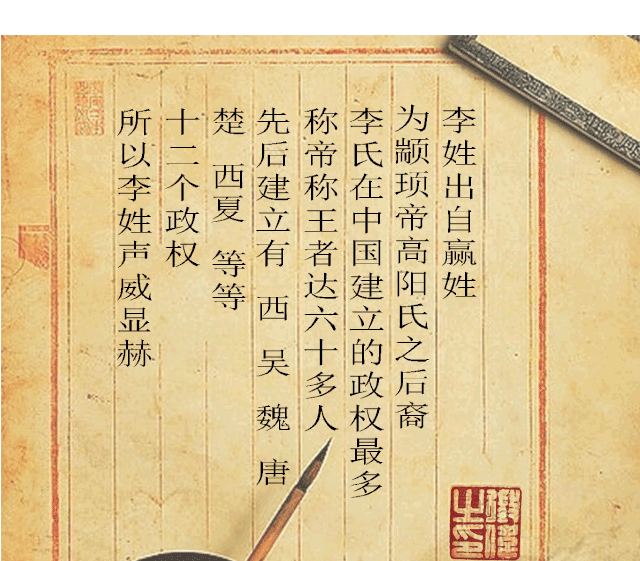 李姓出自赢姓
为颛顼帝高阳氏之后裔
李氏在中国建立的政权最多
称帝称王者达六十多人
先后建立有 西 吴 魏 唐
楚 西夏 等等
十二个政权
所以李姓声威显赫